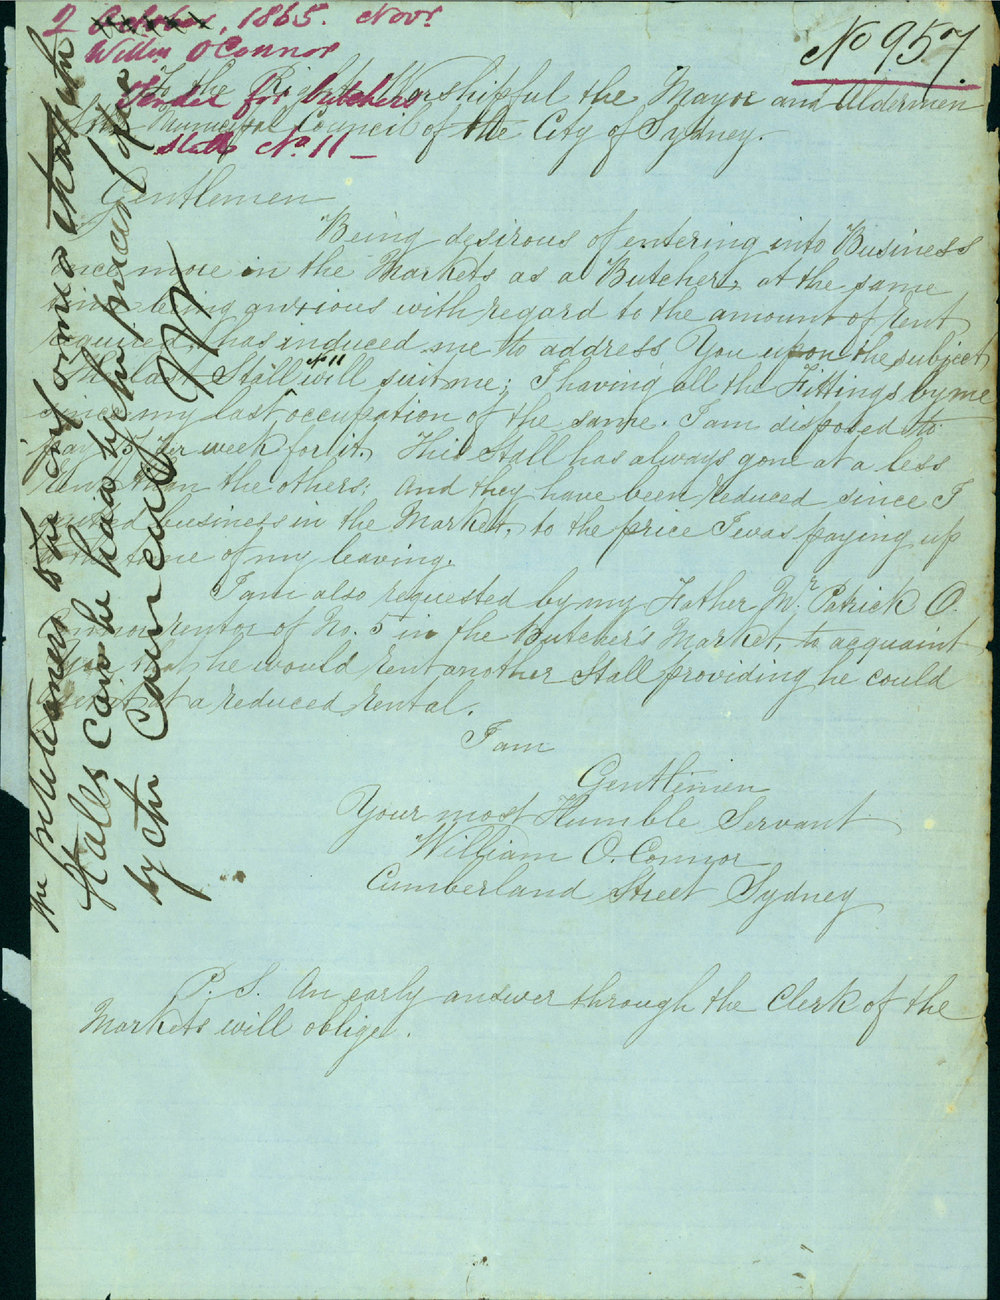 2 October, 1865. Novr
Willm O'Connor
Tender for butchers
stall No 11 —
No 957.
To the Right Worshipful the Mayor and Aldermen
Municipal Council of the City of Sydney.
Gentlemen
Being desirous of entering into Business
once more in the Markets as a Butcher, at the same
time being anxious with regard to the amount of Rent
required, has induced me to address You upon the subject
The last Stall No 11 will suit me; I having all the Fittings by me
since my last occupation of the same. I am disposed to
pay per week for it. This Stall has always gone at a less
Rent than the others. And they have been reduced since I
business in the Market, to the price I was paying up
to the time of my leaving.
I am also requested by my Father Mr. Patrick O.
Connor rentor of No. 5 in the Butcher's Market, to acquaint
you that he would Rent another Stall providing he could
at a reduced Rental.
I am
Gentlemen
Your most Humble Servant
William O. Connor
Cumberland Street Sydney
P. S. An early answer through the Clerk of the
Markets will oblige.
The petitioner to be informed that the
Stalls can be had by the prices
by the Council